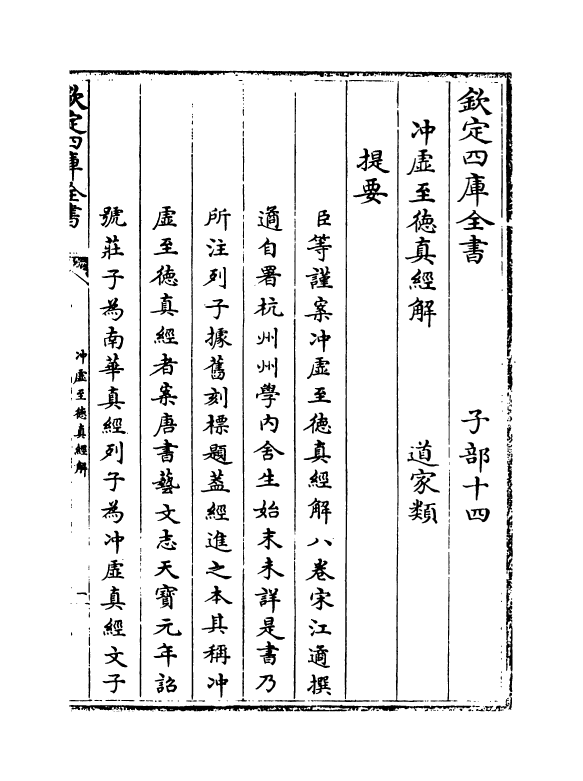 欽定四庫全書　　　　子部十四
冲虛至德真經解　　　道家類
提要
臣等謹案冲虛至德真經解八卷宋江遹撰
遹自署杭州州學內舍生始末未詳是書乃
所注列子據舊刻標題蓋經進之本其稱冲
虛至德真經者案唐書藝文志天寶元年詔
號莊子為南華真經列子為冲虛真經文子
欽定四庫全書
冲虛至德真經解
一